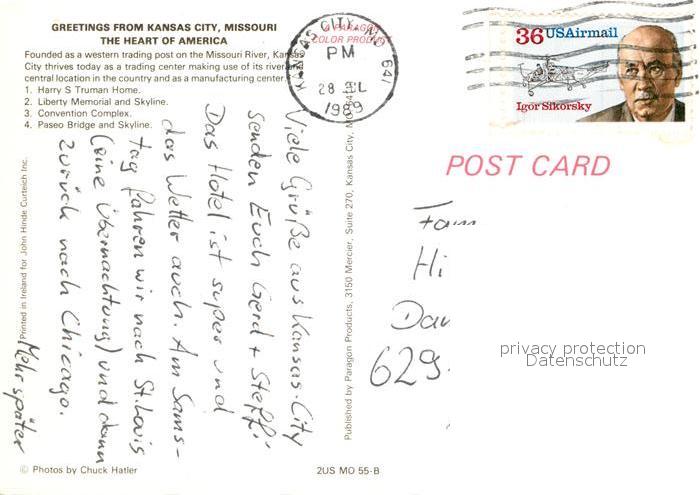 GREETINGS FROM KANSAS CITY, MISSOURI
THE HEART OF AMERICA
Founded as a western trading post on the Missouri River, Kansas
City thrives today as a trading center making use of its river and
central location in the country and as a manufacturing center.
1. Harry S Truman Home.
2. Liberty Memorial and Skyline.
3. Convention Complex.
4. Paseo Bridge and Skyline.
A PARAGON
COLOR PRODUCT
KANSAS CITY, MO 641
PM
28 JUL
1989
36 USAirmail
Igor Sikorsky
POST CARD
Viele Grüße aus Kansas-City
senden Euch Gerd + Steffi
Das Hotel ist super und
das Wetter auch. Am Sams-
tag fahren wir nach St. Louis
(eine Übernachtung) und dann
zurück nach Chicago.
Mehr später
Hi
629
privacy protection
Datenschutz
Printed in Ireland for John Hinde Curteich Inc.
Published by Paragon Products, 3150 Mercier, Suite 270, Kansas City, MO
© Photos by Chuck Hatler
2US MO 55-B